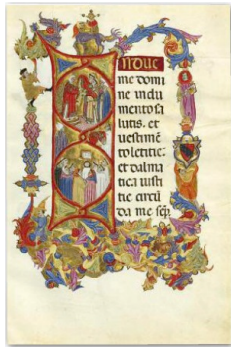 INDUE
me domi
ne indu
mento sa
lutis. et
uestimē
to letitie:
et dalma
tica iusti
tie circū
da me sep.